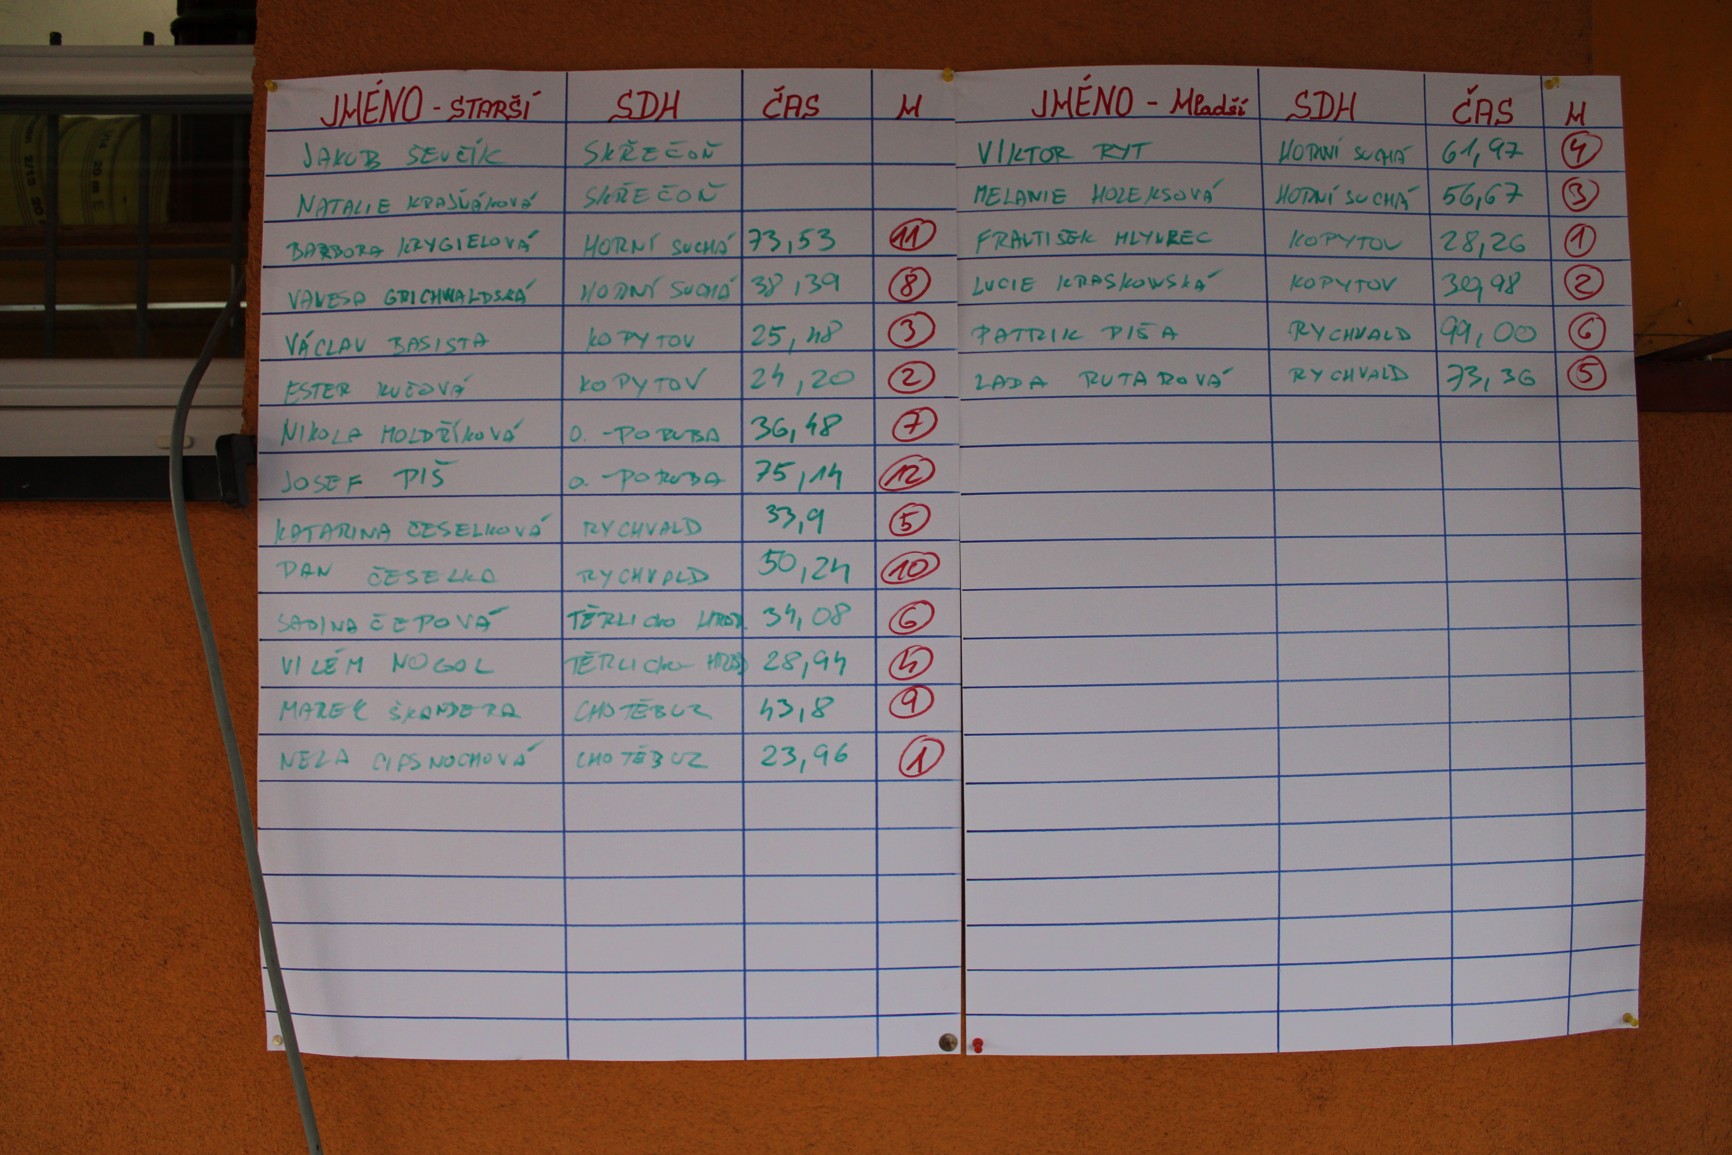 JMÉNO - STARŠÍ SDH ČAS M
JAKUB ŠEVČÍK SKŘEČOŇ
NATALIE SKŘEČOŇ
BARBORA KRYGIELOVÁ HORNÍ SUCHÁ 73,53 11
VANESA HORNÍ SUCHÁ 38,39 8
VÁCLAV BASISTA KOPYTOV 25,48 3
ESTER KOPYTOV 24,20 2
NIKOLA HOLDŘÍKOVÁ O. - PORUBA 36,48 7
JOSEF PIŠ O. - PORUBA 75,14 12
KATARINA ČESELKOVÁ RYCHVALD 33,9 5
DAN ČESELKA RYCHVALD 50,24 10
SABINA ČEPOVÁ TĚRLICKO 34,08 6
VILÉM NOGOL TĚRLICKO 28,94 4
MAREK ŠKANDERA CHOTĚBUZ 43,8 9
NELA CHOTĚBUZ 23,96 1
JMÉNO - Mladší SDH ČAS M
VIKTOR RYT HORNÍ SUCHÁ 61,97 4
MELANIE HOLEKSOVÁ HORNÍ SUCHÁ 56,67 3
KOPYTOV 28,26 1
LUCIE KRASKOWSKÁ KOPYTOV 2
PATRIK PIŠA RYCHVALD 99,00 6
LADA RUTAROVÁ RYCHVALD 73,36 5